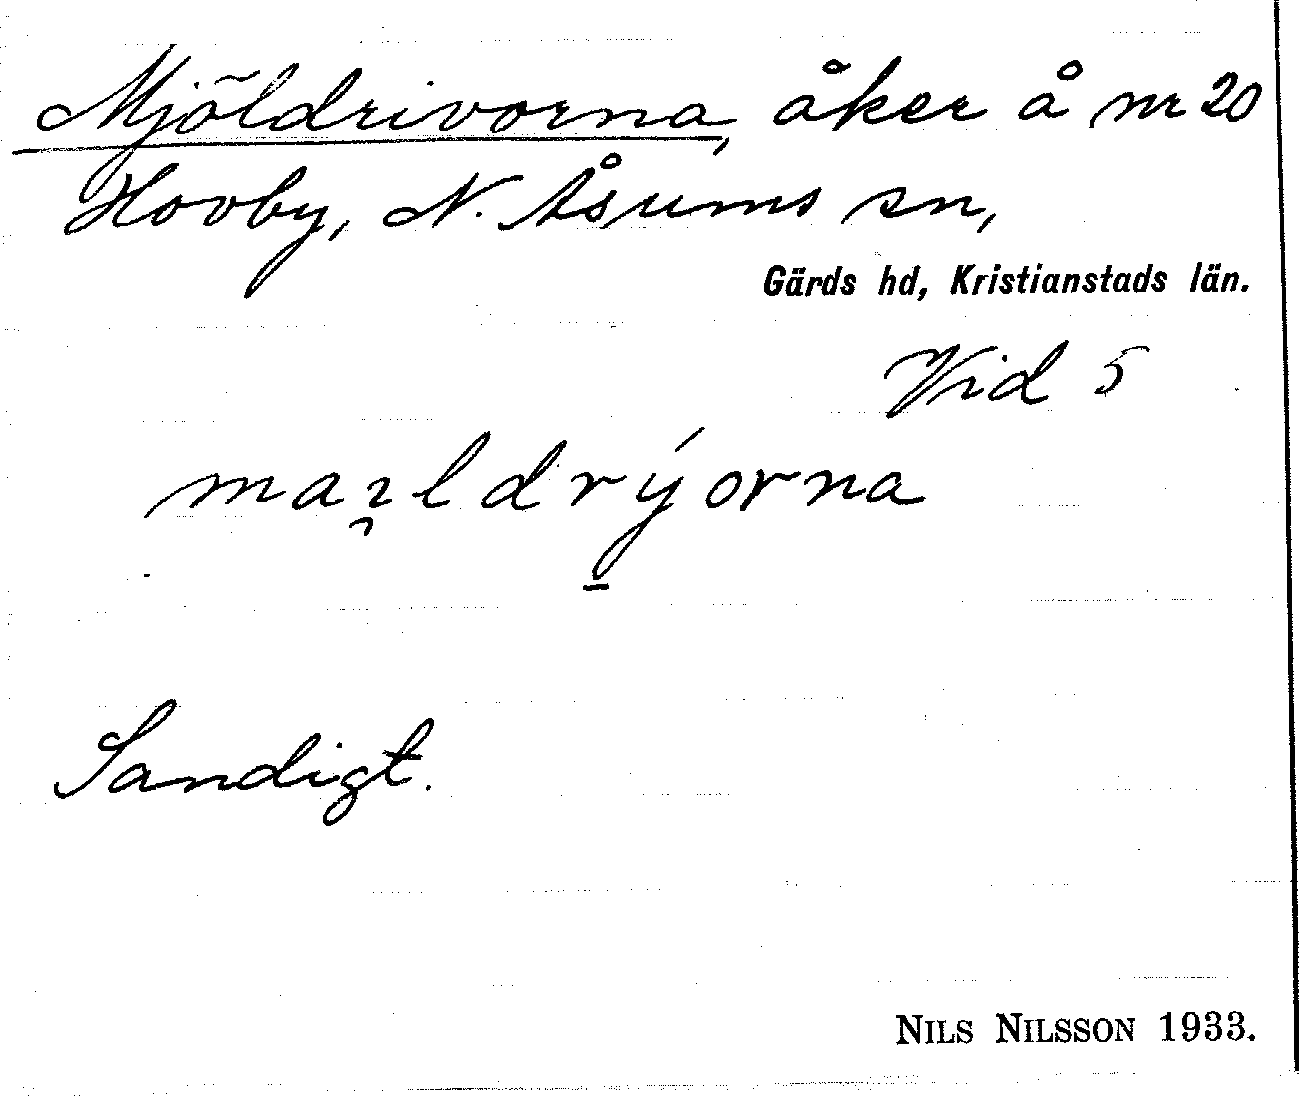 Mjöldrivorna, åker å nr 20
Hovby, N. Åsums sn,
Gärds hd, Kristianstads län.
Vid 5
Sandigt.
NILS NILSSON 1933.